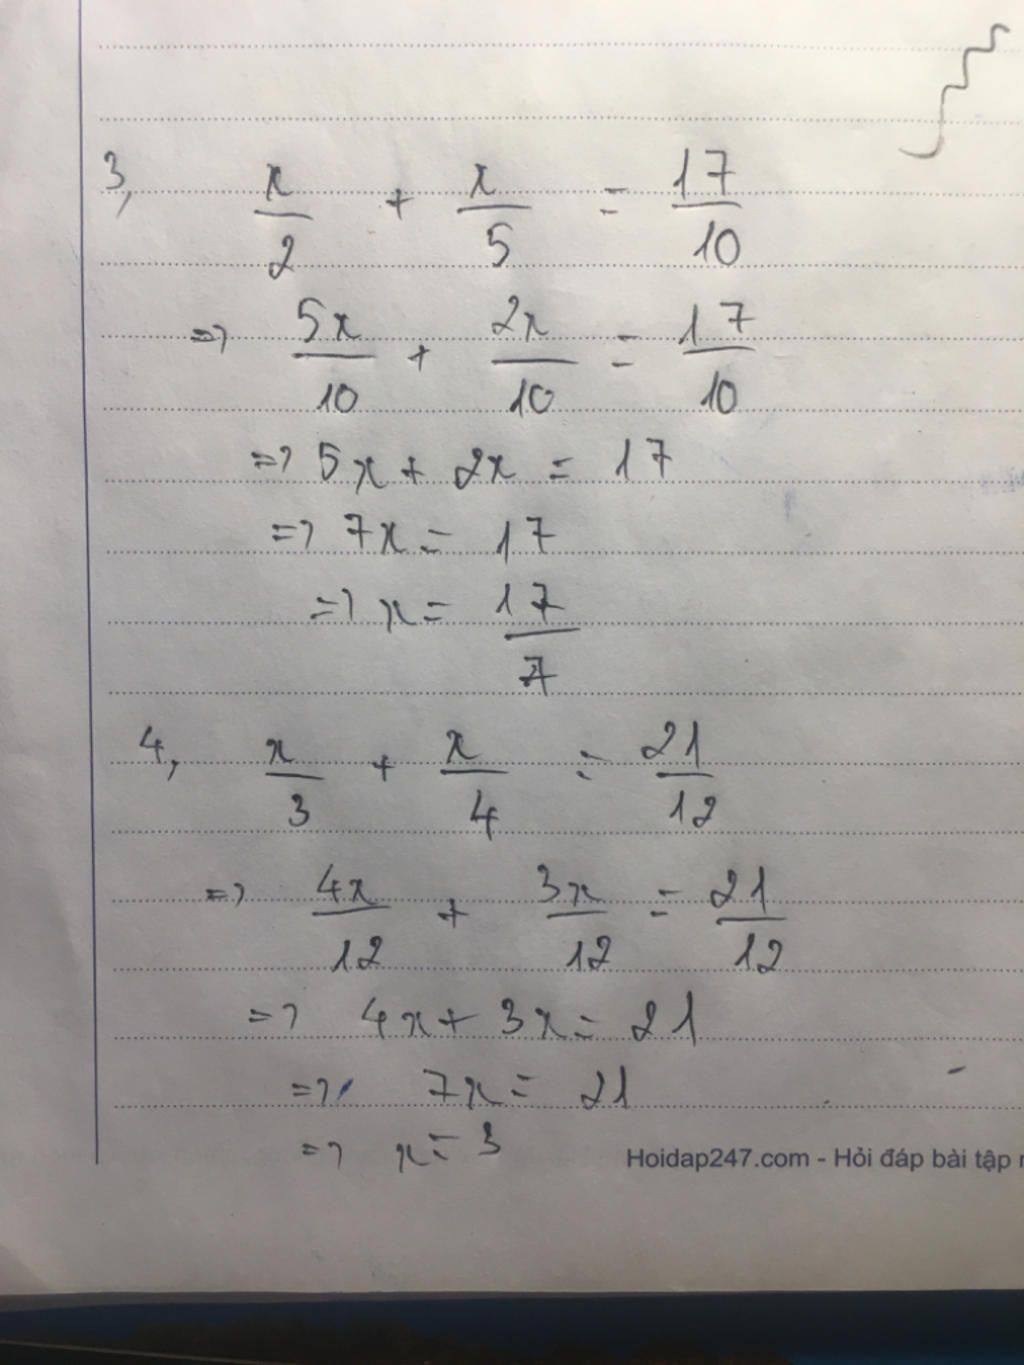 3, x/2 + x/5 = 17/10
=> 5x/10 + 2x/10 = 17/10
=> 5x + 2x = 17
=> 7x = 17
=> x = 17/7
4, x/3 + x/4 = 21/12
=> 4x/12 + 3x/12 = 21/12
=> 4x + 3x = 21
=> 7x = 21
=> x = 3
Hoidap247.com - Hỏi đáp bài tập